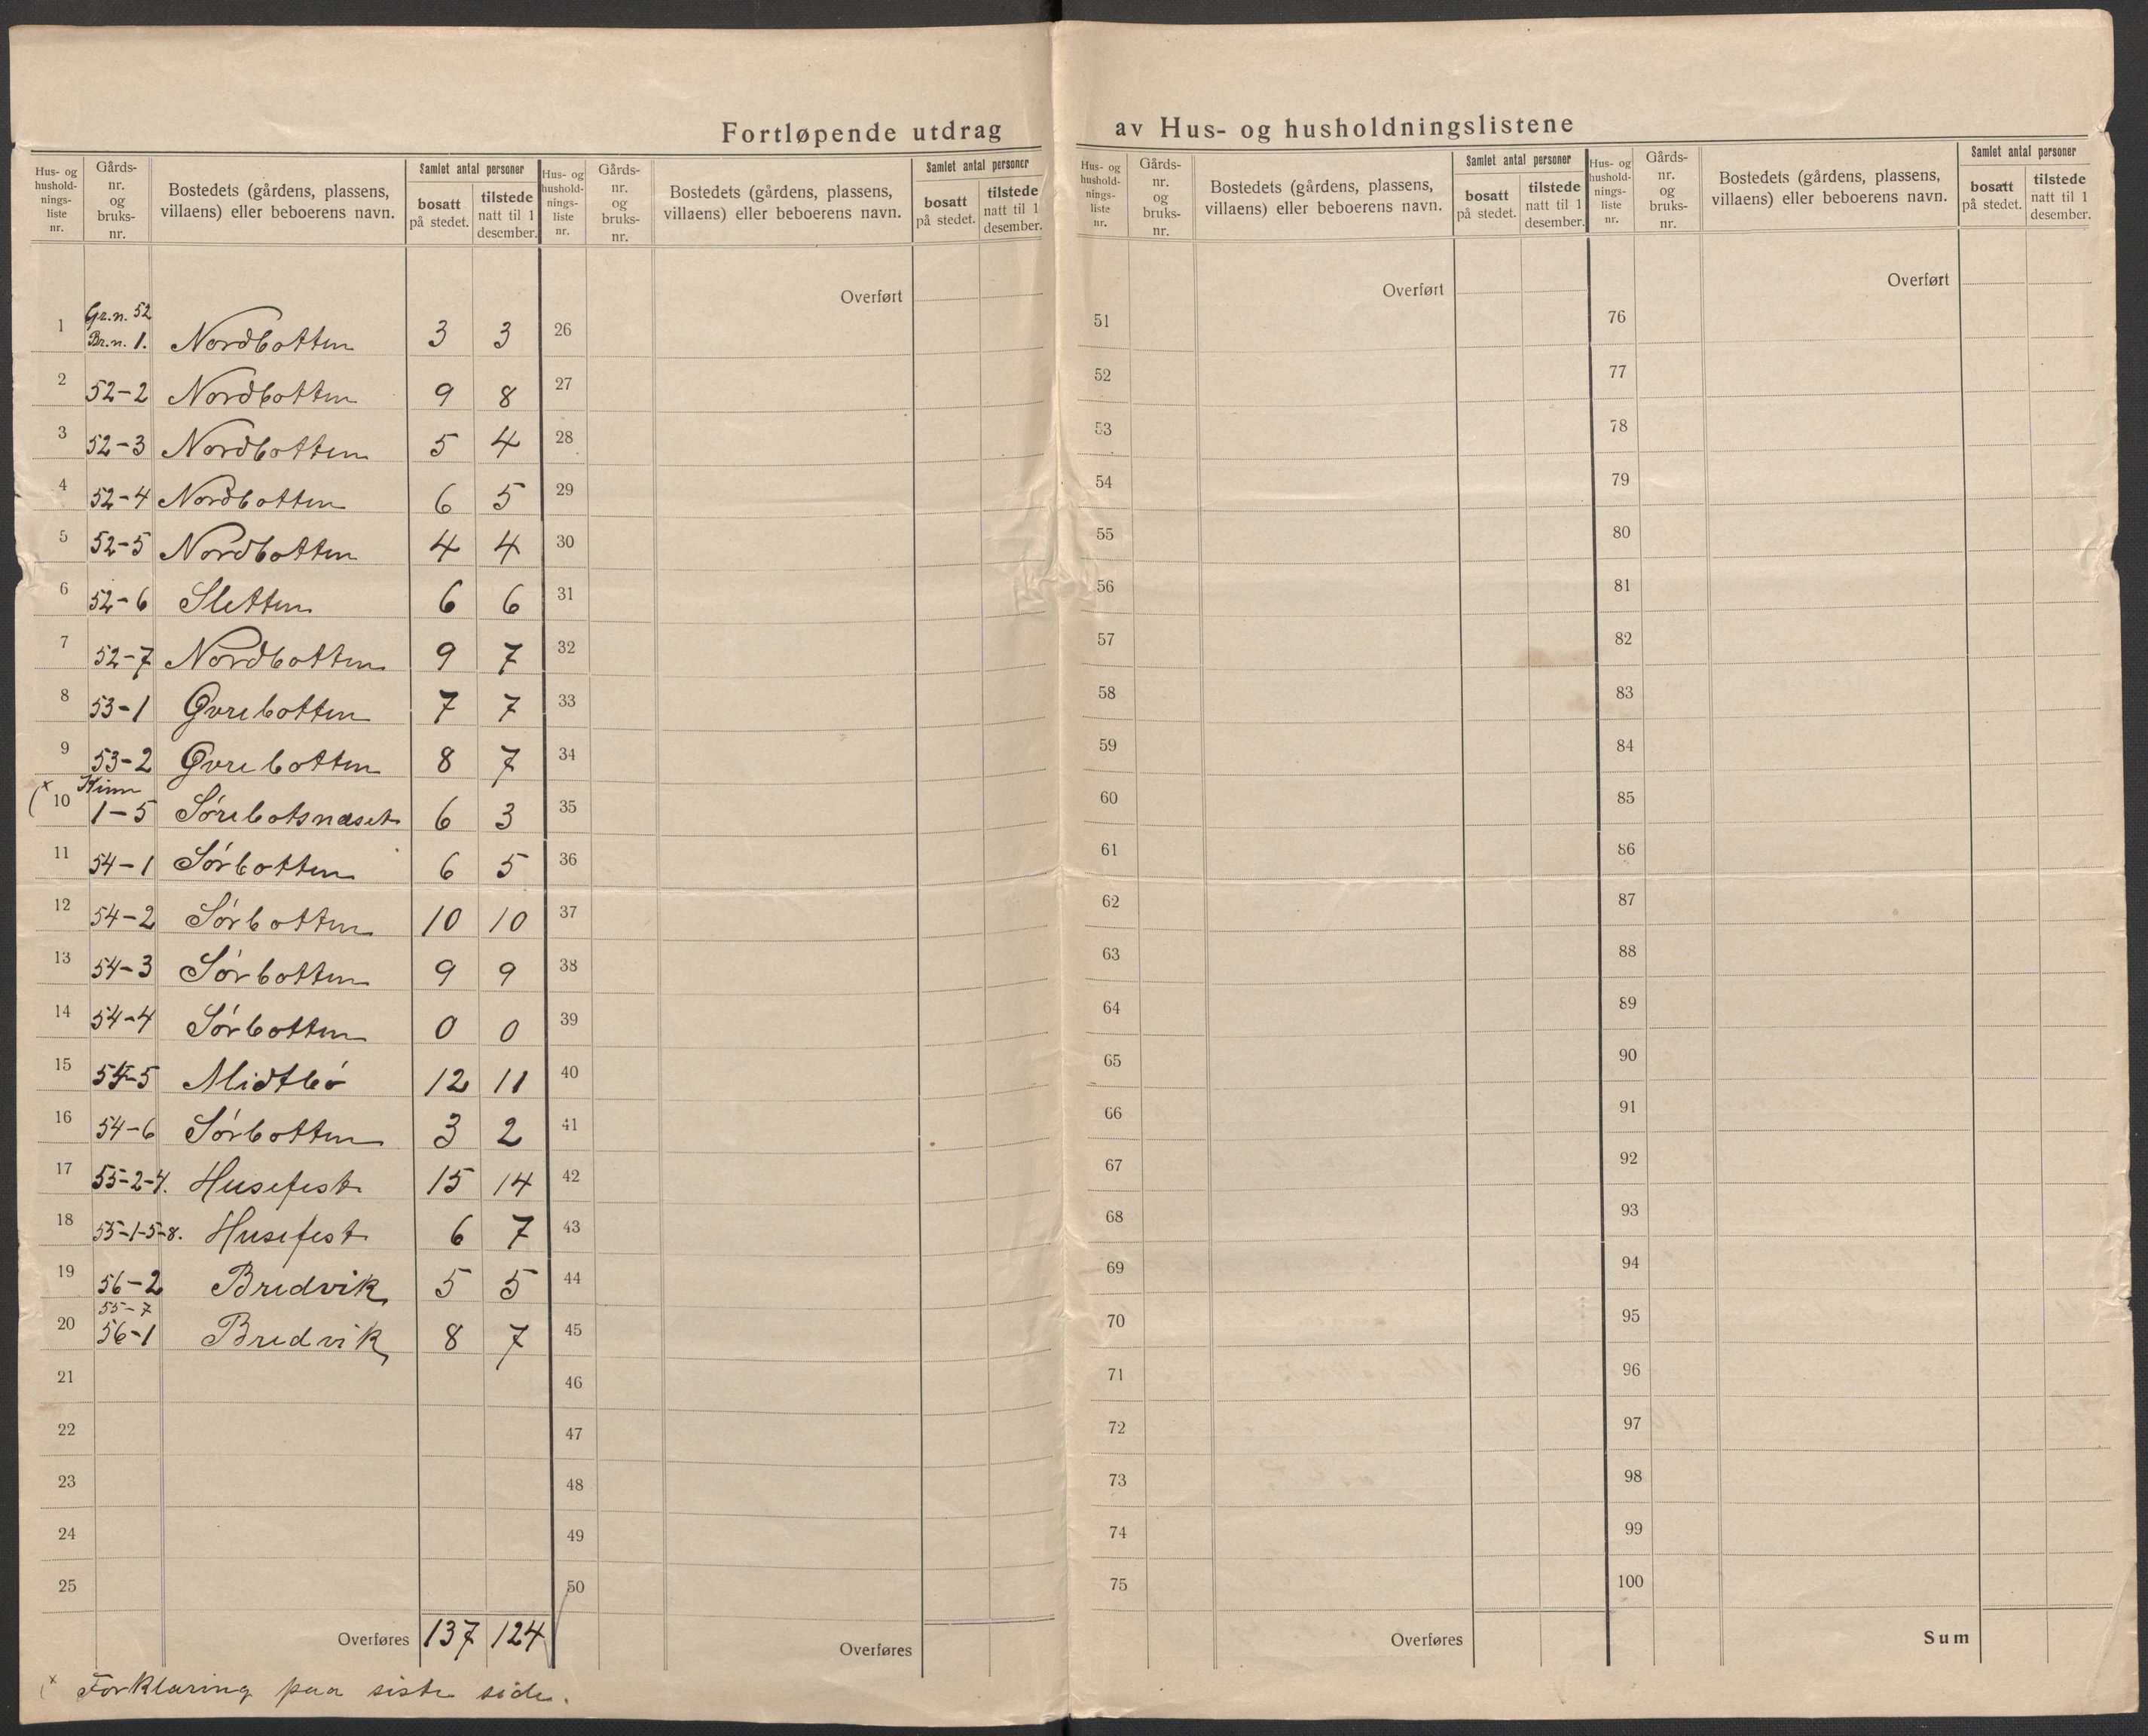 Fortløpende utdrag av Hus- og husholdningslistene
Hus- og hushold-nings-liste nr. Gårds-nr. og bruks-nr. Bostedets (gårdens, plassens, villaens) eller beboerens navn. Samlet antal personer bosatt på stedet. tilstede natt til 1 desember.
1 Gr.n. 52 Br.n. 1. Nordbotten 3 3
2 52-2 Nordbotten 9 8
3 52-3 Nordbotten 5 4
4 52-4 Nordbotten 6 5
5 52-5 Nordbotten 4 4
6 52-6 Sletten 6 6
7 52-7 Nordbotten 9 7
8 53-1 Øvrebotten 7 7
9 53-2 Øvrebotten 8 7
(x 10 Kinn 1-5 Sørebotsnæset 6 3
11 54-1 Sørbotten 6 5
12 54-2 Sørbotten 10 10
13 54-3 Sørbotten 9 9
14 54-4 Sørbotten 0 0
15 54-5 Midtbø 12 11
16 54-6 Sørbotten 3 2
17 55-2-4. Husefest 15 14
18 55-1-5-8. Husefest 6 7
19 56-2 Bredvik 5 5
20 55-7 56-1 Bredvik 8 7
21
22
23
24
25
Overføres 137 124
(x Forklaring paa siste side.
Hus- og hushold-nings-liste nr. Gårds-nr. og bruks-nr. Bostedets (gårdens, plassens, villaens) eller beboerens navn. Samlet antal personer bosatt på stedet. tilstede natt til 1 desember.
Overført
26
27
28
29
30
31
32
33
34
35
36
37
38
39
40
41
42
43
44
45
46
47
48
49
50
Overføres
Hus- og hushold-nings-liste nr. Gårds-nr. og bruks-nr. Bostedets (gårdens, plassens, villaens) eller beboerens navn. Samlet antal personer bosatt på stedet. tilstede natt til 1 desember.
Overført
51
52
53
54
55
56
57
58
59
60
61
62
63
64
65
66
67
68
69
70
71
72
73
74
75
Overføres
Hus- og hushold-nings-liste nr. Gårds-nr. og bruks-nr. Bostedets (gårdens, plassens, villaens) eller beboerens navn. Samlet antal personer bosatt på stedet. tilstede natt til 1 desember.
Overført
76
77
78
79
80
81
82
83
84
85
86
87
88
89
90
91
92
93
94
95
96
97
98
99
100
Sum